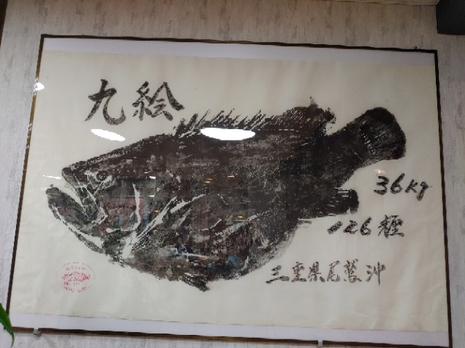 九絵
36kg
126糎
三重県尾鷲沖